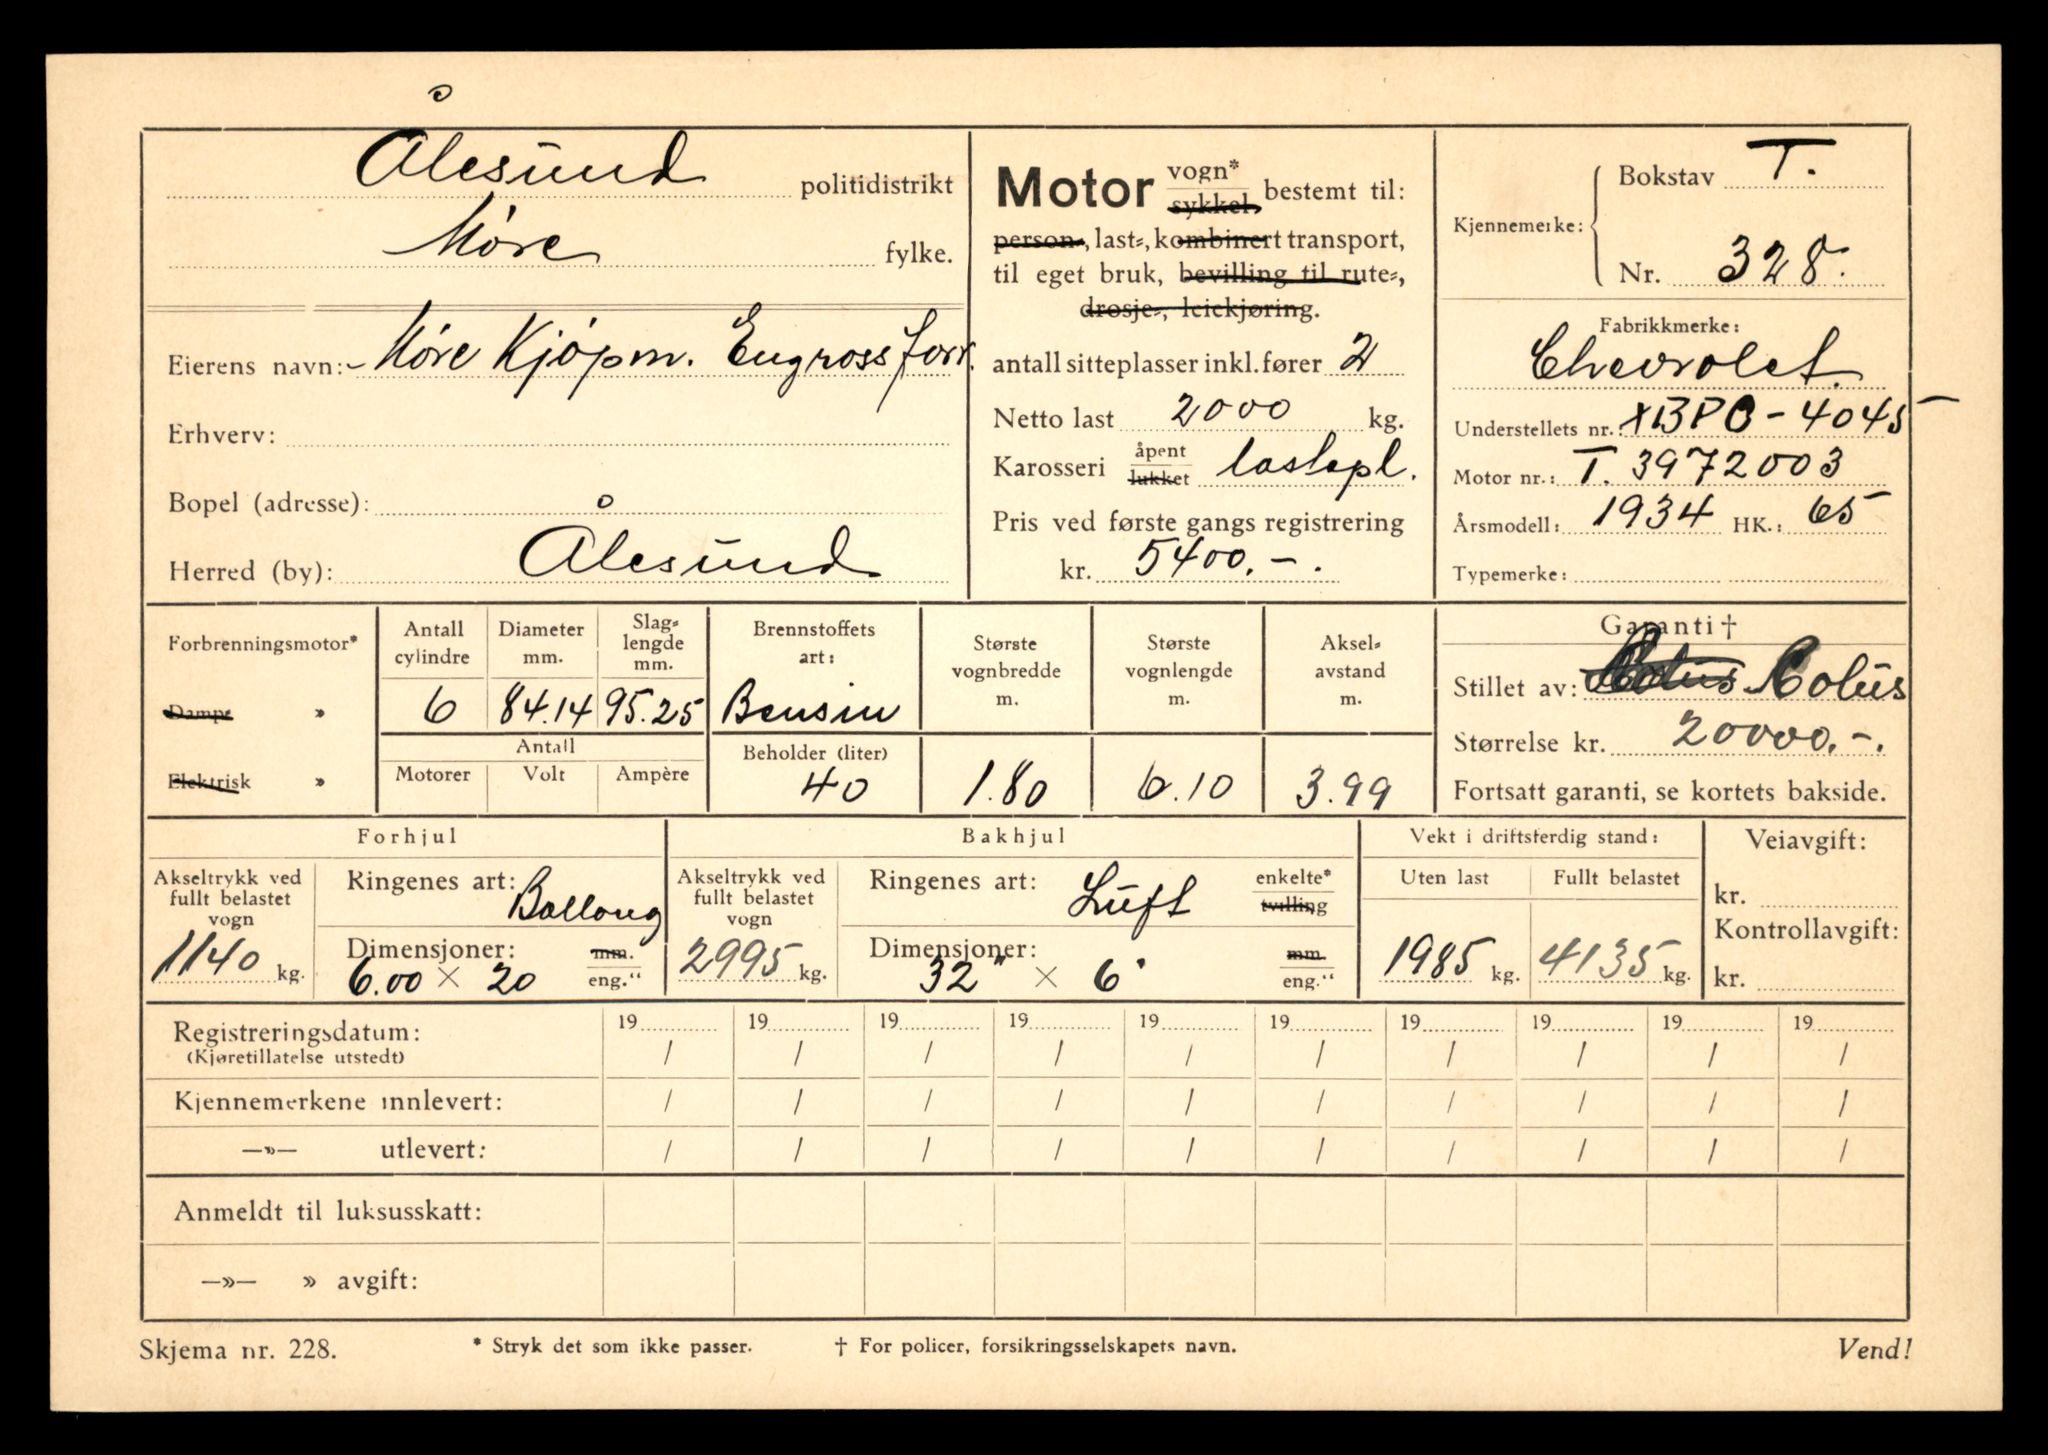 Ålesund politidistrikt
Møre fylke.
Eierens navn: Møre Kjøpm. Engrossforr.
Erhverv:
Bopel (adresse):
Herred (by): Ålesund
Motor vogn* sykkel. bestemt til:
person-, last-, kombinert transport,
til eget bruk, bevilling til rute-,
drosje-, leiekjøring.
antall sitteplasser inkl. fører 2
Netto last 2000 kg.
Karosseri åpent lukket lastepl.
Pris ved første gangs registrering
kr. 5400.-.
Kjennemerke: Bokstav T.
Nr. 328.
Fabrikkmerke:
Chevrolet.
Understellets nr.: XBPC-4045-
Motor nr.: T. 3972003
Årsmodell: 1934 HK.: 65
Typemerke:
Forbrenningsmotor*
Damp- »
Elektrisk »
Antall cylindre
6
Diameter mm.
84.14
Slaglengde mm.
95.25
Antall
Motorer Volt Ampère
Brennstoffets art:
Bensin
Beholder (liter)
40
Største vognbredde m.
1.80
Største vognlengde m.
6.10
Aksel-avstand m.
3.99
Garanti †
Stillet av: Rolus
Størrelse kr. 20000.-.
Fortsatt garanti, se kortets bakside.
Forhjul
Akseltrykk ved fullt belastet vogn
1140 kg.
Ringenes art: Ballong
Dimensjoner: mm.
6.00 × 20 eng.“
Bakhjul
Akseltrykk ved fullt belastet vogn
2995 kg.
Ringenes art: Luft enkelte* tvilling
Dimensjoner: mm.
32" × 6" eng.“
Vekt i driftsferdig stand:
Uten last Fullt belastet
1985 kg. 4135 kg.
Veiavgift:
kr.
Kontrollavgift:
kr.
Registreringsdatum: 19 19 19 19 19 19 19 19 19 19
(Kjøretillatelse utstedt) / / / / / / / / / /
Kjennemerkene innlevert: / / / / / / / / / /
—»— utlevert: / / / / / / / / / /
Anmeldt til luksusskatt:
—»— » avgift:
Skjema nr. 228. * Stryk det som ikke passer. † For policer, forsikringsselskapets navn. Vend!